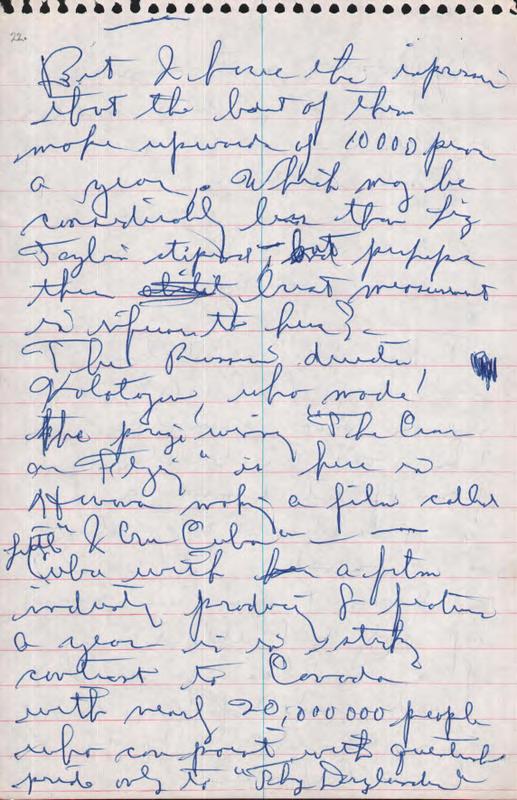 22.
But I have the impression
that the best of them
make upwards of 10000 pesos
a year. Which may be
considerably less than Liz
Taylor's stipend, but perhaps
their bust measurement
is inferior to hers?
The Russian director
Kolotozov, who made
the prize winning "The Cranes
are Flying" is here in
Havana making a film called
"I Am Cuba"
Cuba with a film
industry producing 8 features
a year is in striking
contrast to Canada
with nearly 20,000 000 people
who can point with
pride only to